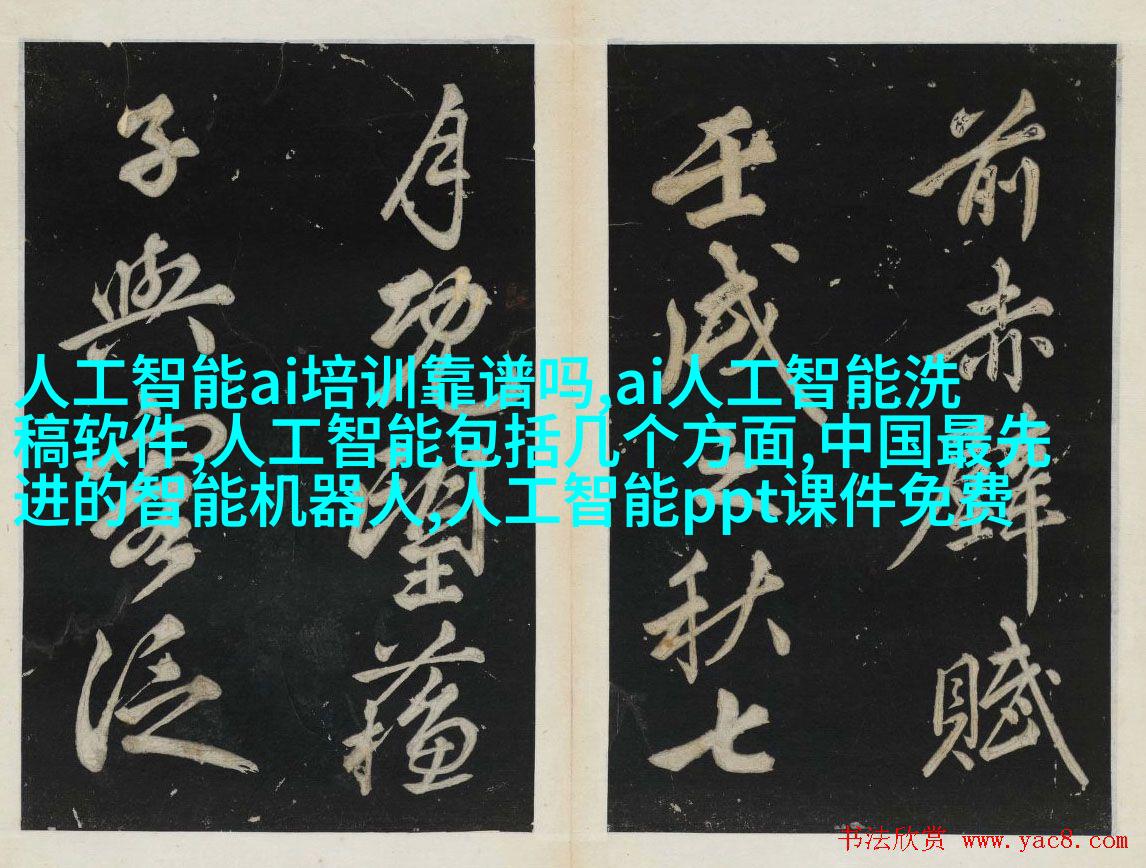 前赤壁賦
壬戌之秋七
月既望蘓
子與客泛
人工智能ai培训靠谱吗,ai人工智能洗
稿软件,人工智能包括几个方面,中国最先
进的智能机器人,人工智能ppt课件免费
书法欣赏 www.yac8.com